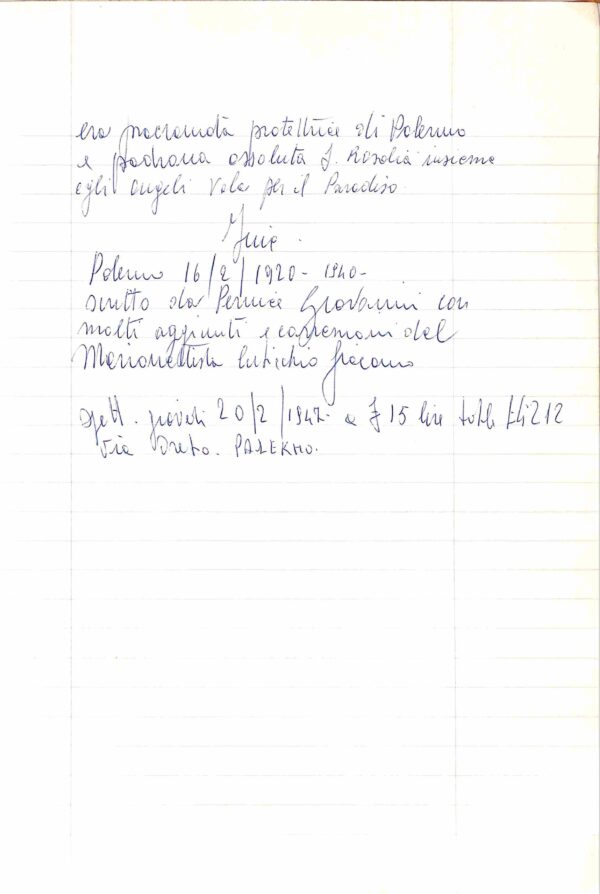 era procramata protettrice di Palermo
e padrona assoluta S. Rosalia insieme
egli angeli vola per il Paradiso.
Fine.
Palermo 16/2/1920-1940-
scritto da Pernice Giovanni con
molti aggiunti e correzioni del
Marionettista Cuticchio Giacomo
spett. giovedì 20/2/1947- a £ 15 lire
Via Oreto. PALERMO.